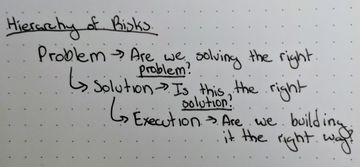 Hierarchy of Risks
Problem → Are we solving the right
problem?
↳ Solution → Is this the right
solution?
↳ Execution → Are we building
it the right way?